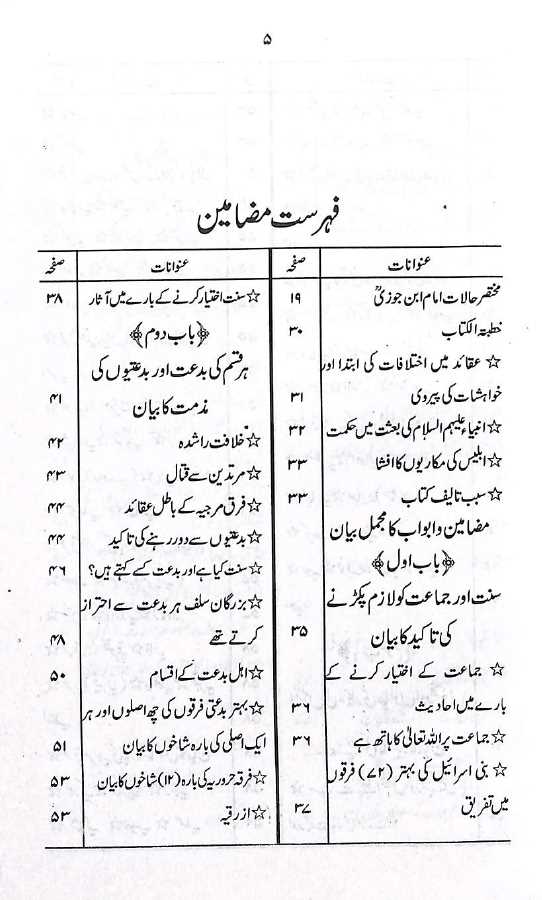 ۵
فہرست مضامین
عنوانات صفحہ
مختصر حالات امام ابن جوزیؒ ۱۹
خطبۃ الکتاب ۳۰
☆ عقائد میں اختلافات کی ابتدا اور
خواہشات کی پیروی ۳۱
☆ انبیاء علیہم السلام کی بعثت میں حکمت ۳۲
☆ ابلیس کی مکاریوں کا افشا ۳۳
☆ سبب تالیف کتاب ۳۳
مضامین و ابواب کا مجمل بیان
﴿باب اول﴾
سنت اور جماعت کو لازم پکڑنے
کی تاکید کا بیان ۳۵
☆ جماعت کے اختیار کرنے کے
بارے میں احادیث ۳۶
☆ جماعت پر اللہ تعالیٰ کا ہاتھ ہے ۳۶
☆ بنی اسرائیل کی بہتر (۷۲) فرقوں
میں تفریق ۳۷
عنوانات صفحہ
☆ سنت اختیار کرنے کے بارے میں آثار ۳۸
﴿باب دوم﴾
ہر قسم کی بدعت اور بدعتیوں کی
مذمت کا بیان ۴۱
☆ خلافت راشدہ ۴۲
☆ مرتدین سے قتال ۴۳
☆ فرق مرجیہ کے باطل عقائد ۴۴
☆ بدعتیوں سے دور رہنے کی تاکید ۴۴
☆ سنت کیا ہے اور بدعت کسے کہتے ہیں؟ ۴۶
☆ بزرگان سلف ہر بدعت سے احتراز
کرتے تھے ۴۸
☆ اہل بدعت کے اقسام ۵۰
☆ بہتر بدعتی فرقوں کی چھ اصلوں اور ہر
ایک اصلی کی بارہ شاخوں کا بیان ۵۱
☆ فرقہ حروریہ کی بارہ (۱۲) شاخوں کا بیان ۵۳
☆ ازرقیہ ۵۳